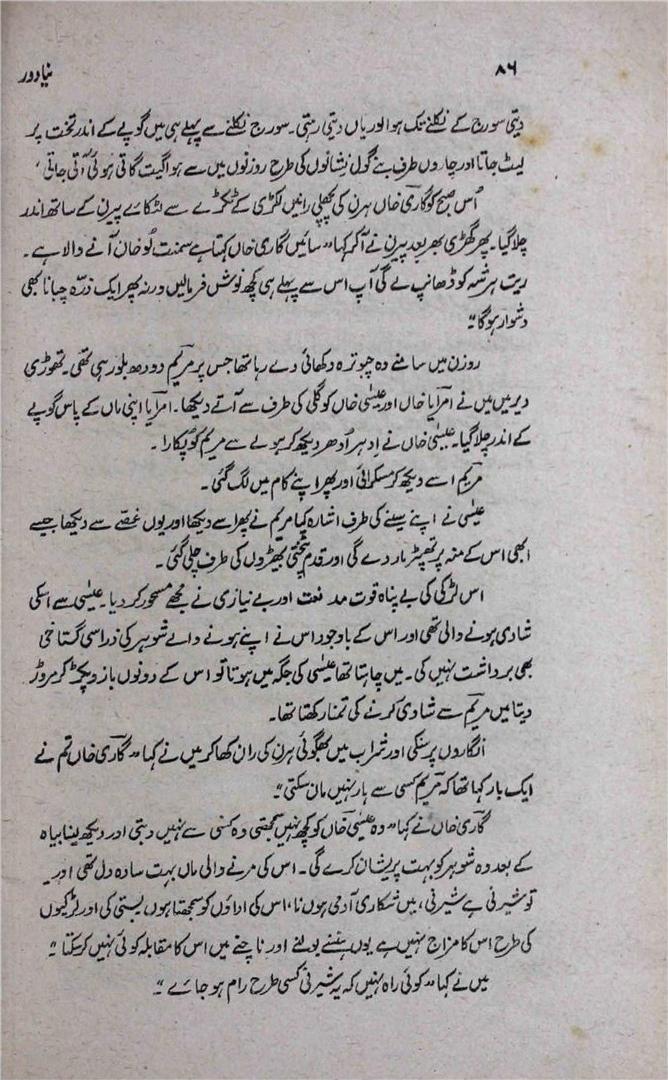 ۸۶
نیا دور
دیتی سورج کے نکلنے تک ہوا لوریاں دیتی رہتی۔ سورج نکلنے سے پہلے ہی میں گوپے کے اندر تخت پر
لیٹ جاتا اور چاروں طرف بنے گول نشانوں کی طرح روزنوں میں سے ہوا گیت گاتی ہوئی آتی جاتی،
اُس صبح کو گاری خاں ہرن کی پچھلی رانیں لکڑی کے ٹکڑے سے لٹکائے پیرن کے ساتھ اندر
چلا گیا۔ پھر گھڑی بھر بعد پیرن نے آکر کہا "سائیں گاری خاں کہتا ہے سخت لُو خان آنے والا ہے۔
ریت ہر شہ کو ڈھانپ لے گی آپ اس سے پہلے ہی کچھ نوش فرمالیں ورنہ پھر ایک ذرّہ چبانا بھی
دشوار ہوگا"
روزن میں سامنے وہ چبوترہ دکھائی دے رہا تھا جس پر مریم دودھ بلو رہی تھی۔ تھوڑی
دیر میں میں نے امرایا خاں اور عیسٰی خاں کو گلی کی طرف سے آتے دیکھا۔ امرایا اپنی ماں کے پاس گوپے
کے اندر چلا گیا۔ عیسٰی خاں نے ادہر اُدھر دیکھ کر ہولے سے مریم کو پکارا۔
مریم اسے دیکھ کر مسکرائی اور پھر اپنے کام میں لگ گئی۔
عیسٰی نے اپنے سینے کی طرف اشارہ کیا مریم نے پھر اسے دیکھا اور یوں غصّے سے دیکھا جیسے
ابھی اس کے منہ پر تھپڑ مار دے گی اور قدم پٹختی بھیڑوں کی طرف چلی گئی۔
اس لڑکی کی بے پناہ قوت مدافعت اور بے نیازی نے مجھے مسحور کر دیا۔ عیسٰی سے اسکی
شادی ہونے والی تھی اور اس کے باوجود اس نے اپنے ہونے والے شوہر کی ذرا سی گستاخی
بھی برداشت نہیں کی۔ میں چاہتا تھا عیسٰی کی جگہ میں ہوتا تو اس کے دونوں بازو پکڑ کر مروڑ
دیتا میں مریم سے شادی کرنے کی تمنا رکھتا تھا۔
انگاروں پر سنکی اور شراب میں بھگوئی ہرن کی ران کھا کر میں نے کہا "گاری خاں تم نے
ایک بار کہا تھا کہ مریم کسی سے ہار نہیں مان سکتی"
گاری خاں نے کہا "وہ عیسٰی خاں کو کچھ نہیں سمجھتی وہ کسی سے نہیں دبتی اور دیکھ لینا بیاہ
کے بعد وہ شوہر کو بہت پریشان کرے گی۔ اس کی مرنے والی ماں بہت سادہ دل تھی اور یہ
تو شیرنی ہے شیرنی، میں شکاری آدمی ہوں نا، اس کی اداؤں کو سمجھتا ہوں بستی کی اور لڑکیوں
کی طرح اس کا مزاج نہیں ہے یوں ہنسنے بولنے اور ناچنے میں اس کا مقابلہ کوئی نہیں کرسکتا"
میں نے کہا "کوئی راہ نہیں کہ یہ شیرنی کسی طرح رام ہو جائے"